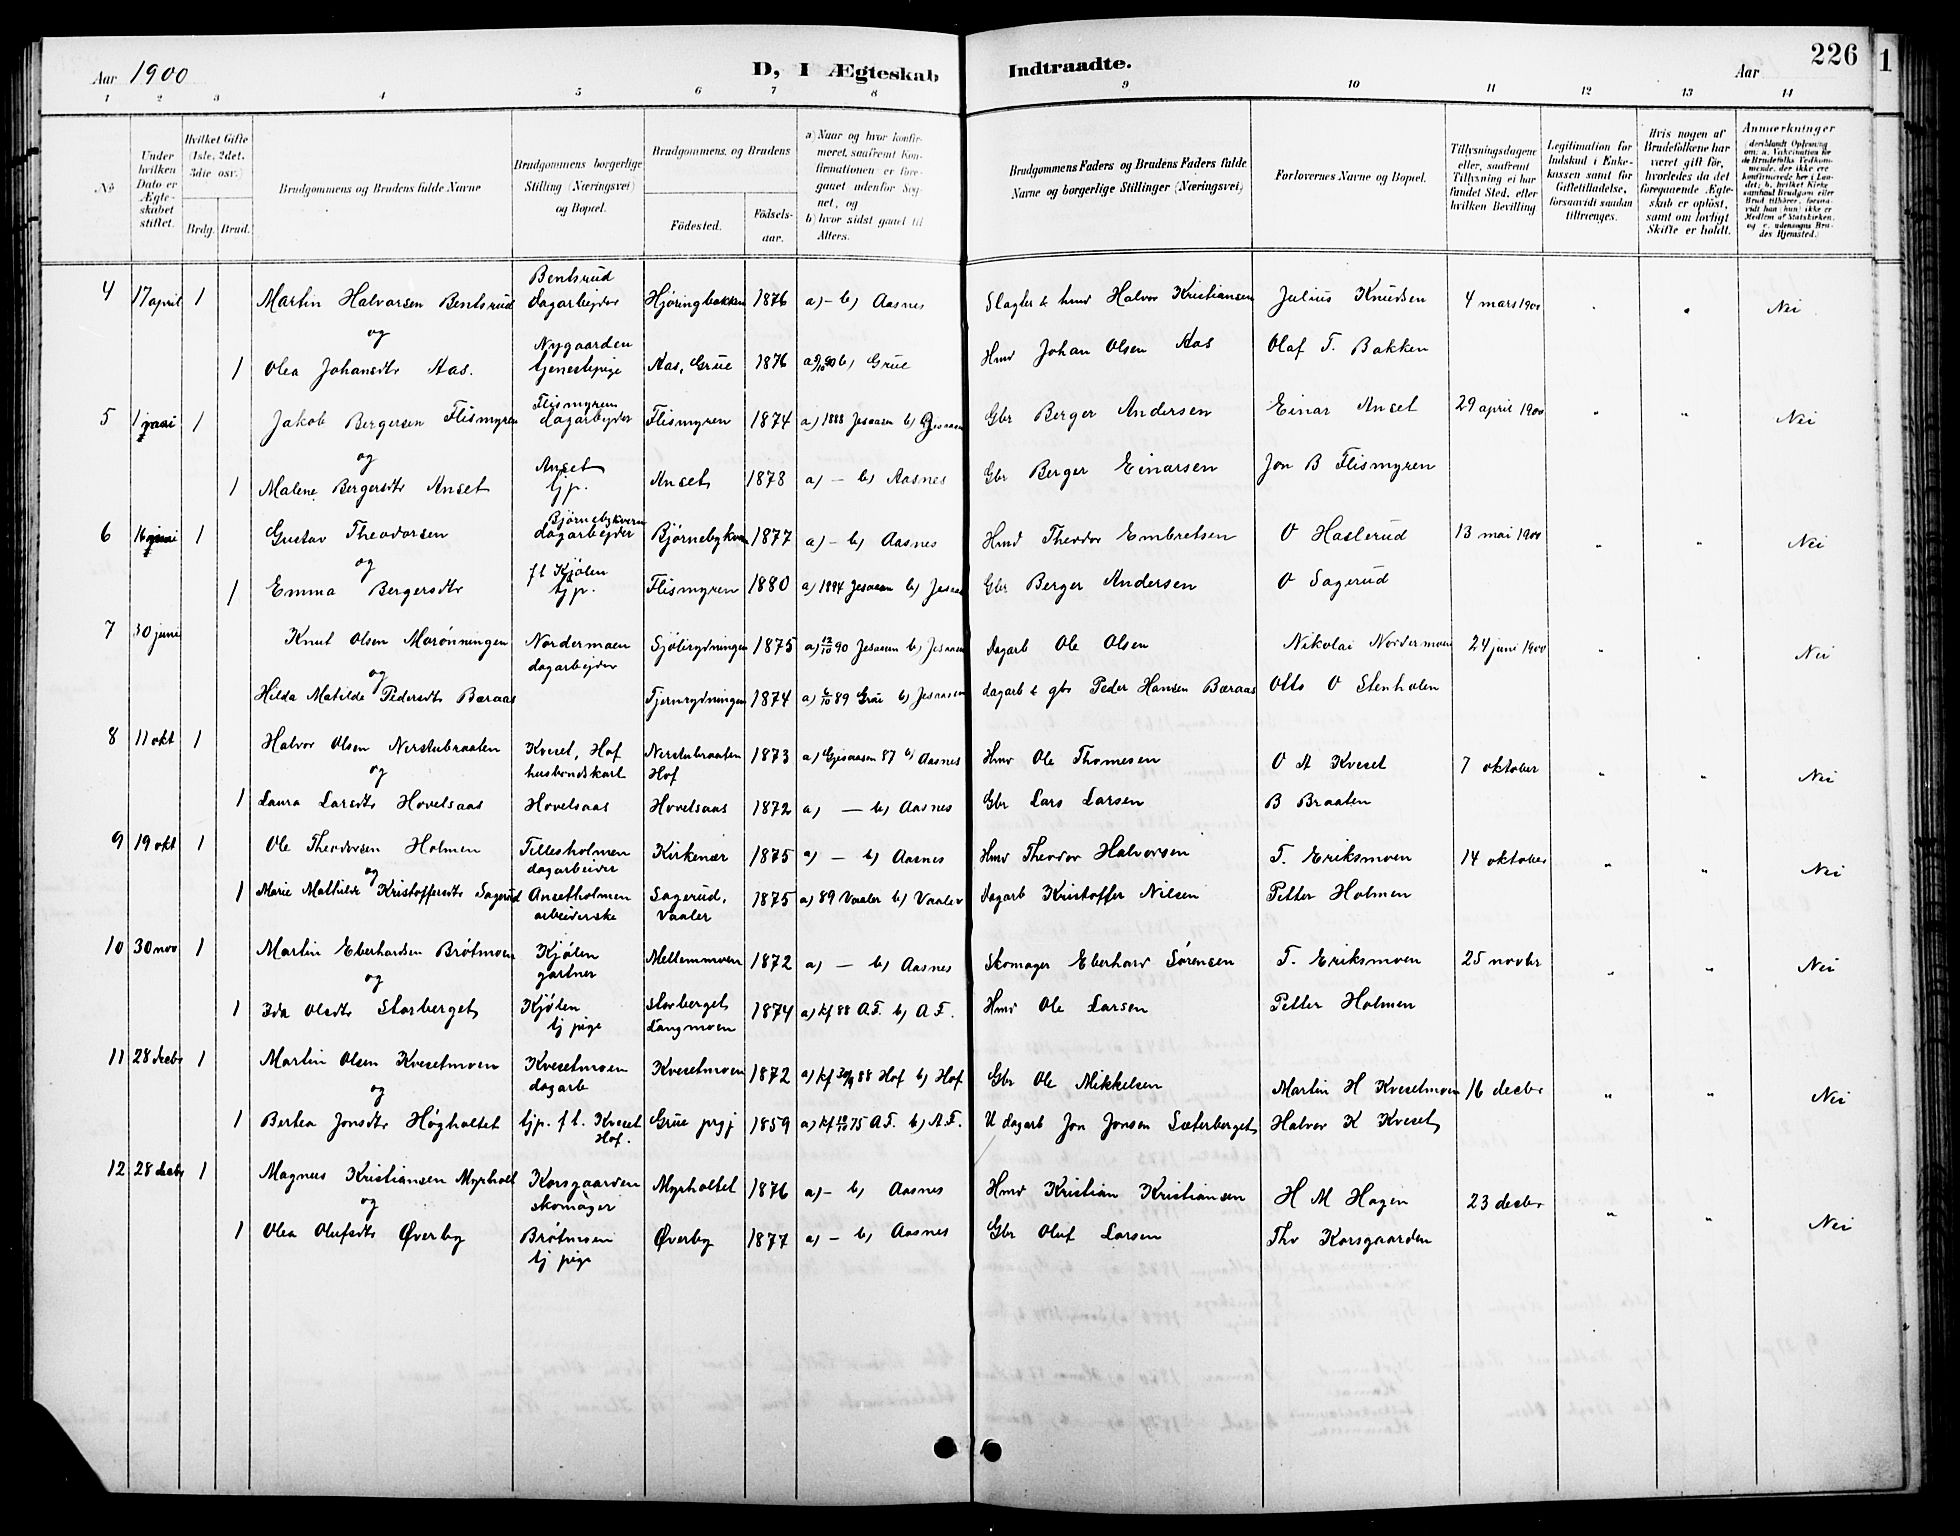 Aar 1900
D, I Ægteskab Indtraadte.
226
Aar
1
1 2 3 4 5 6 7 8 9 10 11 12 13 14
No
Under hvilken Dato er Ægteskabet stiftet.
Hvilket Gifte (1ste, 2det, 3die osv.)
Brdg. Brud.
Brudgommens og Brudens fulde Navne
Brudgommens borgerlige Stilling (Næringsvei) og Bopæl.
Brudgommens og Brudens
Fødested.
Fødselsaar.
a) Naar og hvor konfirmeret, saafremt Konfirmationen er foregaaet udenfor Sognet, og
b) hvor sidst gaaet til Alters.
Brudgommens Faders og Brudens Faders fulde Navne og borgerlige Stillinger (Næringsvei)
Forlovernes Navne og Bopæl.
Tillysningsdagene eller, saafremt Tillysning ei har fundet Sted, efter hvilken Bevilling
Legitimation for Indskud i Enkekassen samt for Giftetilladelse, forsaavidt saadan tiltrænges.
Hvis nogen af Brudefolkene har været gift før, hvorledes da det foregaaende Ægteskab er opløst, samt om lovligt Skifte er holdt.
Anmærkninger
4 17 april 1 Martin Halvorsen Bentsrud Bentsrud dagarbejder Hjøringbakken 1876 a) – b) Aasnes Slagter & hmd Halvor Kristiansen Julius Knudsen 4 mars 1900 " " Nei
og
1 Olea Johansdtr Aas. Nygaarden tjenestepige Aas, Grue 1876 a 9/10 90 b) Grue Hmd Johan Olsen Aas Olaf T. Bakken
5 1 mai 1 Jakob Bergersen Flismyren Flismyren dagarbejder Flismyren 1874 a) 1888 Jesaasen b) Gjesaasen Gbr Berger Andersen Einar Anset 29 april 1900 " " Nei
og
1 Malene Bergersdtr Anset Anset tjp. Anset 1878 a) – b) Aasnes Gbr Berger Einarsen Jon B Flismyren
6 16 mai 1 Gustav Theodorsen Bjørnebykvern dagarbejder Bjørnebykvern 1877 a) – b) Aasnes Hmd Theodor Embretsen O Haslerud 13 mai 1900 " " Nei
og
1 Emma Bergersdtr ft Kjølen tjp. Flismyren 1880 a) 1894 Jesaasen b) Jesaasen Gbr Berger Andersen O Sagerud
7 30 juni Knut Olsen Morønningen Nordermoen dagarbejder Sjølirydningen 1875 a) 12/10 90 Jesaasen b) Jesaasen Dagarb Ole Olsen Nikolai Nordermoen 24 juni 1900 " " Nei
og
Hilda Matilde Pedersdtr Bæraas Tjernrydningen 1874 a) 6/10 89 Grue b) Jesaasen dagarb & gbr Peder Hansen Bæraas Otto O Stenholen
8 11 okt 1 Halvor Olsen Nerstubraaten Kveset, Hof husbondskarl Nerstubraaten Hof 1873 a) Gjesaasen 87 b) Aasnes Hmd Ole Thomesen O A Kveset 7 oktober " " Nei
og
1 Laura Larsdtr Hovelsaas Hovelsaas Hovelsaas 1872 a) – b) Aasnes Gbr Lars Larsen B Braaten
9 19 okt 1 Ole Theodorsen Holmen Tillesholmen dagarbeider Kirkenær 1875 a) – b) Aasnes Hmd Theodor Halvorsen T. Eriksmoen 14 oktober " " Nei
og
1 Marie Mathilde Kristoffersdtr Sagerud Ansetholmen arbeiderske Sagerud, Vaaler 1875 a) 89 Vaaler b) Vaaler Dagarb Kristoffer Nilsen Petter Holmen
10 30 nov 1 Martin Eberhardsen Brøtmoen Kjølen gartner Mellemmoen 1872 a) – b) Aasnes Skomager Eberhard Sørensen T. Eriksmoen 25 novbr " " Nei
og
1 Ida Olsdtr Storberget Kjølen tj pige Storberget Langmoen 1874 a) kf 88 A.F. b) A F. Hmd Ole Larsen Petter Holmen
11 28 decbr 1 Martin Olsen Kvesetmoen Kvesetmoen dagarb Kvesetmoen 1872 a) kf 30/9 88 Hof b) Hof Gbr Ole Mikkelsen Martin H Kvesetmoen 16 decbr " " Nei
og
1 Bertea Jonsdtr Høgholtet tjp. f t. Kveset Hof. Grue prgj 1859 a) kf 10/10 75 A F. b) A F. U dagarb Jon Jonsen Sæterberget Halvor K Kveset
12 28 decbr 1 Magnus Kristiansen Myrholt Korsgaarden skomager Myrholtet 1876 a) – b) Aasnes Hmd Kristian Kristiansen H M Hagen 23 decbr " " Nei
og
1 Olea Olufsdtr Øverby Brøtmoen tj pige Øverby 1877 a) – b) Aasnes Gbr Oluf Larsen Thv Korsgaarden